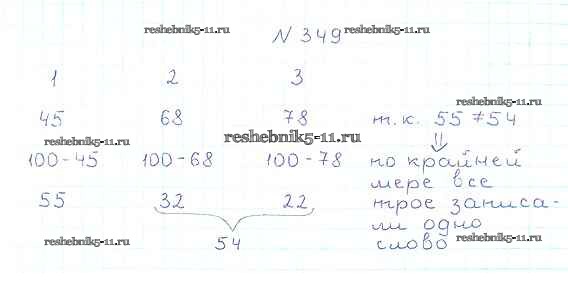 reshebnik5-11.ru
N 349
reshebnik5-11.ru
1 2 3
reshebnik5-11.ru
45 68 78 т.к. 55 ≠ 54
reshebnik5-11.ru
reshebnik5-11.ru
⇓
100-45 100-68 100-78 по крайней
мере все
55 32 22 трое записа-
ли одно
54 слово
reshebnik5-11.ru
reshebnik5-11.ru